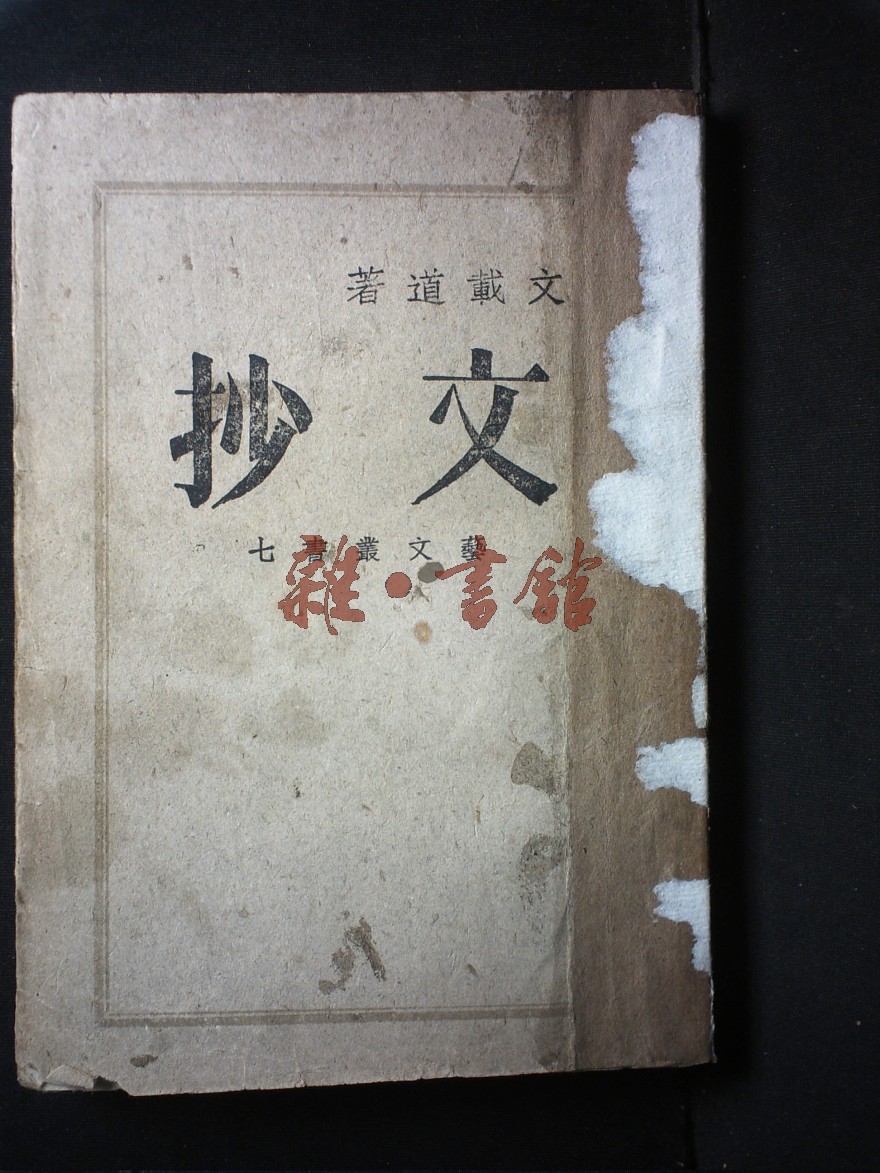 文載道著
文抄
藝文叢書七
雜·書館